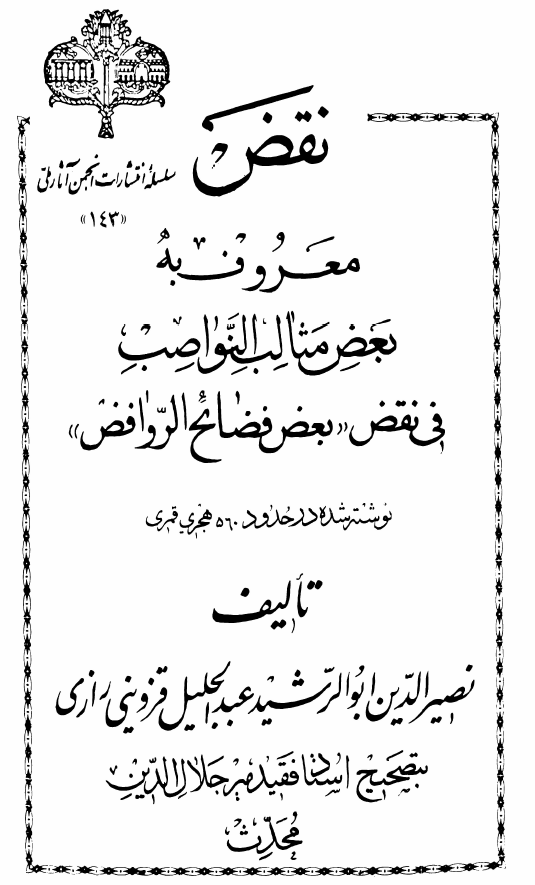 نقض
سلسلهٔ انتشارات انجمن آثار ملی
«۱۴۳»
معروف به
بَعضِ مَثالِبِ النَّواصِبِ
فی نقض «بعض فضائح الرّوافض»
نوشته شده در حدود ۵۶۰ هجری قمری
تألیف
نصیرالدین ابوالرّشید عبدالجلیل قزوینی رازی
بتصحیح استاد فقید میر جلال‌الدین
مُحدِّث